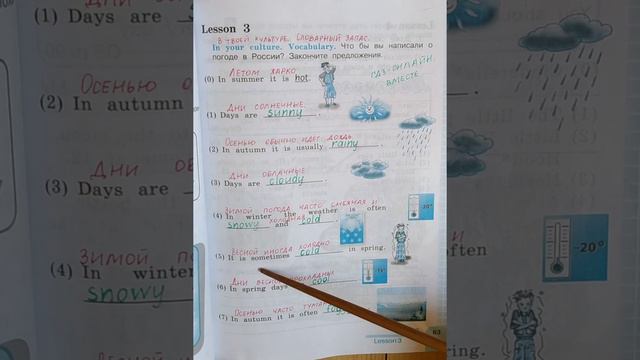 Lesson 3
В ТВОЕЙ КУЛЬТУРЕ. СЛОВАРНЫЙ ЗАПАС.
In your culture. Vocabulary. Что бы вы написали о
погоде в России? Закончите предложения.
ЛЕТОМ ЖАРКО
(0) In summer it is hot.
ГДЗ-ОНЛАЙН
ВМЕСТЕ
ДНИ СОЛНЕЧНЫЕ.
(1) Days are sunny.
ОСЕНЬЮ ОБЫЧНО ИДЕТ ДОЖДЬ
(2) In autumn it is usually rainy.
ДНИ ОБЛАЧНЫЕ
(3) Days are cloudy.
ЗИМОЙ ПОГОДА ЧАСТО СНЕЖНАЯ И
(4) In winter the weather is often
ХОЛОДНАЯ
snowy and cold.
-20°
ВЕСНОЙ ИНОГДА ХОЛОДНО
(5) It is sometimes cold in spring.
ДНИ ВЕСНОЙ ПРОХЛАДНЫЕ
(6) In spring days cool
ОСЕНЬЮ ЧАСТО
(7) In autumn it is often
Lesson 3
63
(1) Days are
ОСЕНЬЮ
(2) In autumn
ДНИ
(3) Days are
ЗИМОЙ
(4) In winter
snowy
often
-20°